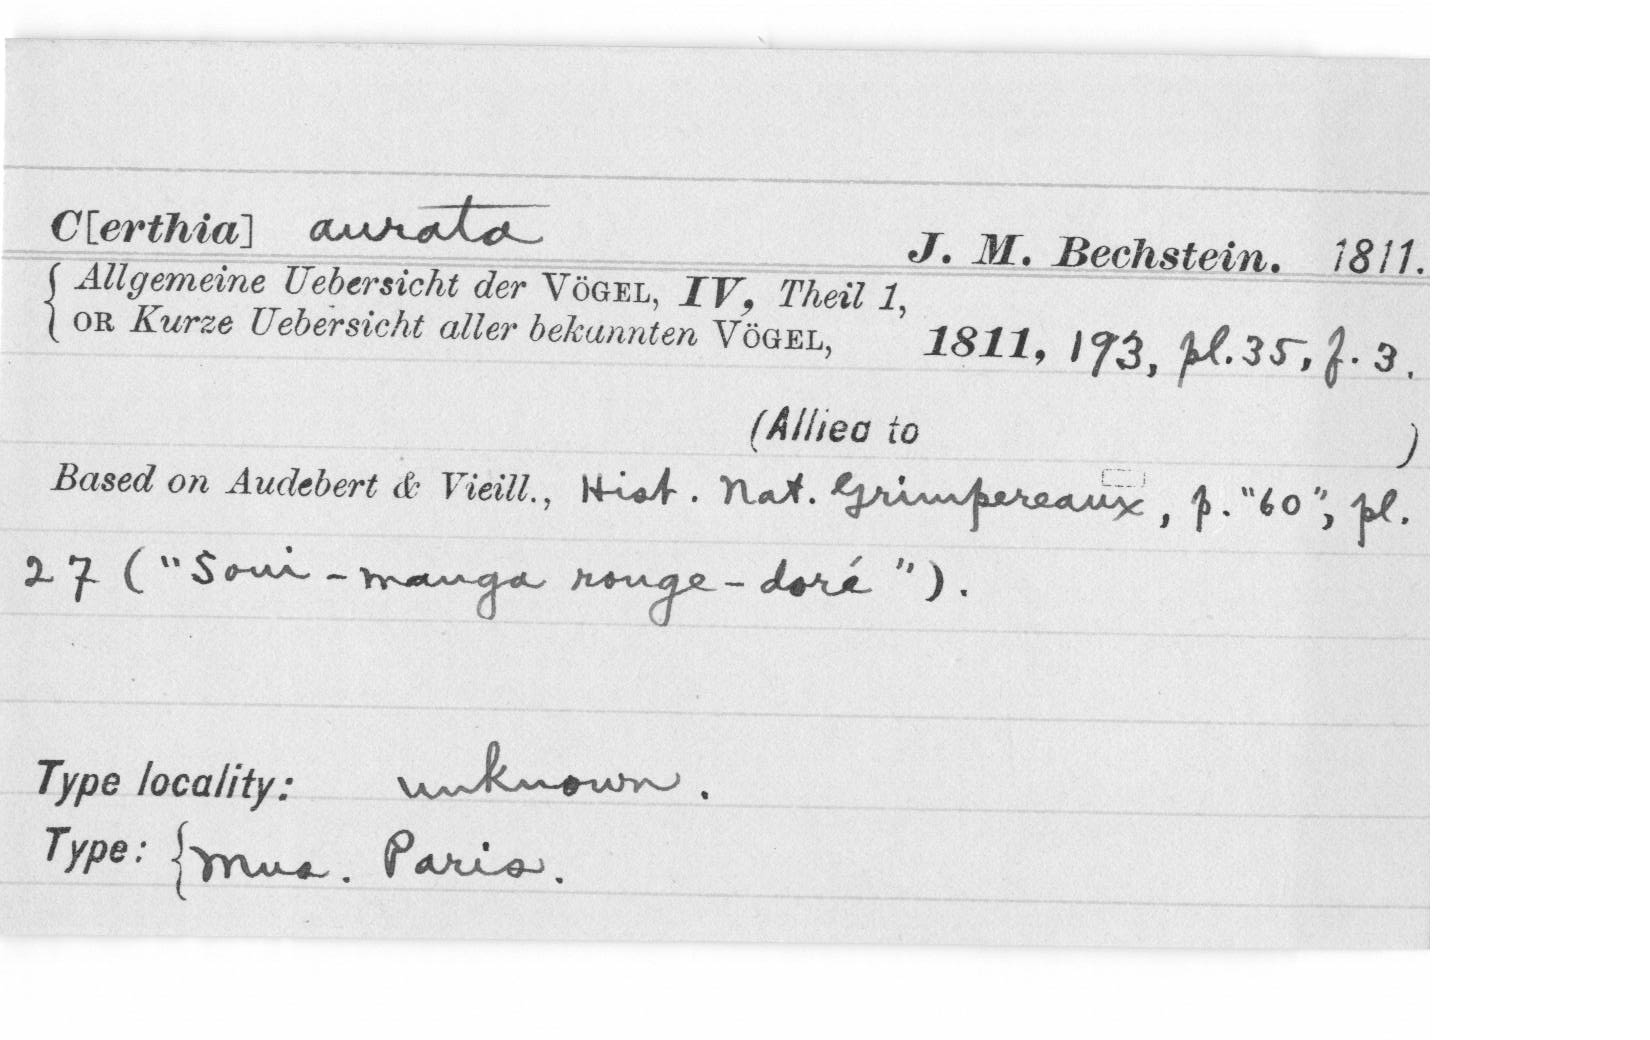 C[erthia] aurata J. M. Bechstein. 1811.
{ Allgemeine Uebersicht der VÖGEL, IV, Theil 1,
OR Kurze Uebersicht aller bekannten VÖGEL, 1811, 193, pl. 35, f. 3.
(Allied to )
Based on Audebert & Vieill., Hist. Nat. Grimpereaux, p. "60", pl.
27 ("Soui-manga rouge-doré").
Type locality: unknown.
Type: { Mus. Paris.